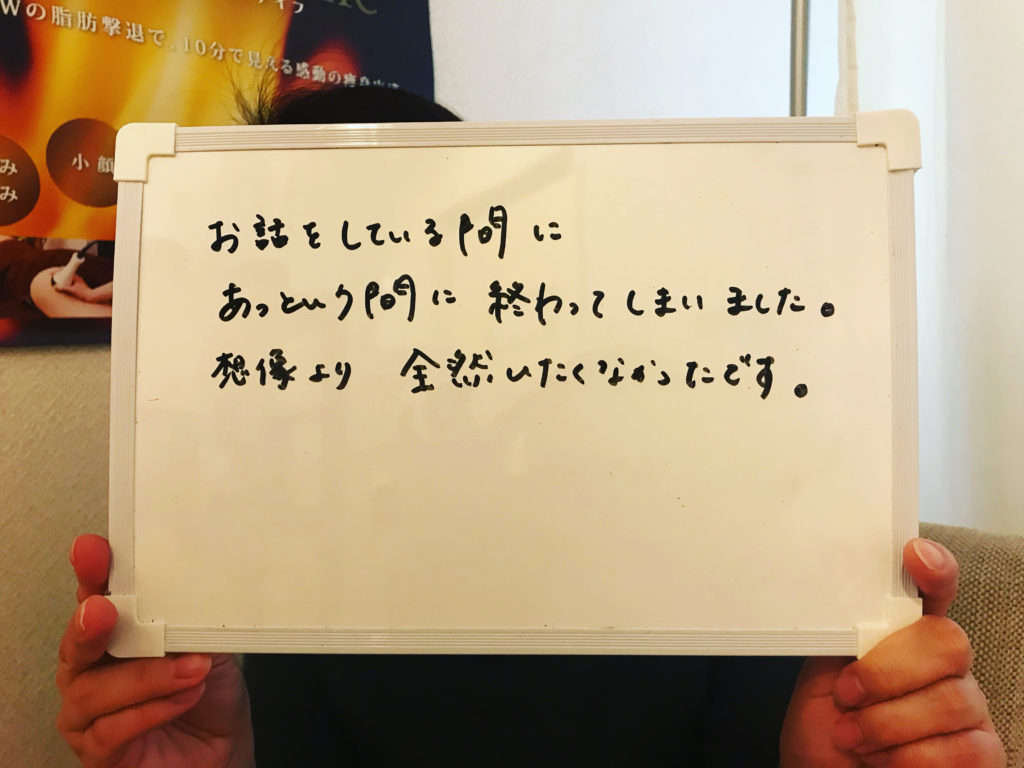 イフ
Wの脂肪撃退で、10分で見える感動の痩身
み
み
小顔
お話をしている間に
あっという間に 終わってしまいました。
想像より 全然いたくなかったです。